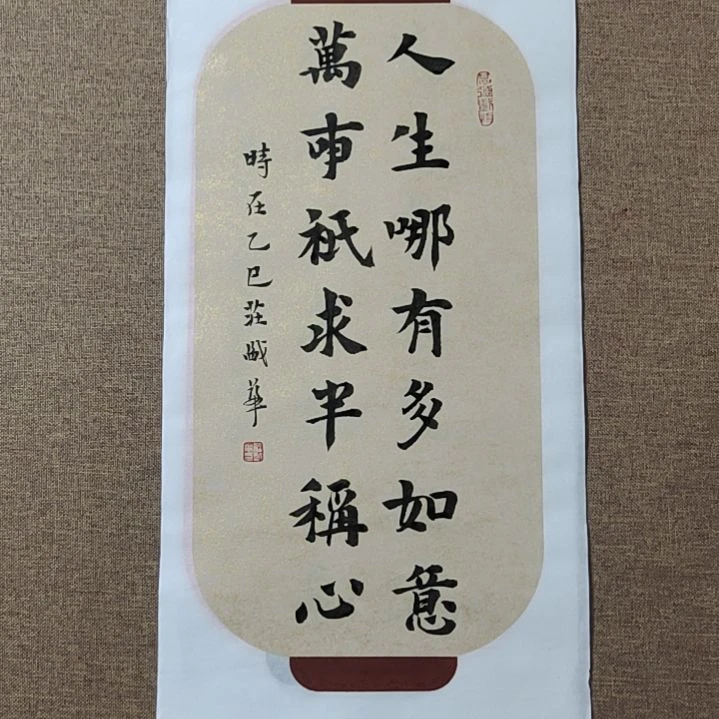 人生哪有多如意
萬事祇求半稱心
時在乙巳莊華